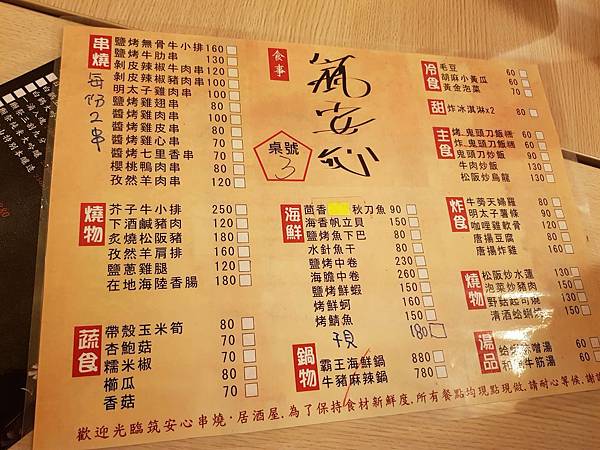 串燒
每份2串
鹽烤無骨牛小排 160
鹽烤牛肋串 130
剝皮辣椒牛肉串 120
剝皮辣椒豬肉串 100
明太子雞肉串 100
鹽烤雞翅串 80
醬烤雞肉串 80
醬烤雞皮串 80
醬烤雞心串 70
醬烤七里香串 70
櫻桃鴨肉串 80
孜然羊肉串 120
燒物
芥子牛小排 250
下酒鹹豬肉 120
炙燒松阪豬 180
孜然羊肩排 180
鹽蔥雞腿 120
在地海陸香腸 180
蔬食
帶殼玉米筍 80
杏鮑菇 70
糯米椒 80
櫛瓜 70
香菇 70
食事
筑安心
桌號
3
海鮮
茴香 秋刀魚 90
海香帆立貝 150
鹽烤魚下巴 80
水針魚干 80
鹽烤中卷 230
海膽中卷 260
鹽烤鮮蝦 150
烤鮮蚵 150
烤鯖魚 150
干貝 180
鍋物
霸王海鮮鍋 880
牛豬麻辣鍋 780
冷食
毛豆 60
胡麻小黃瓜 60
黃金泡菜 70
甜
炸冰淇淋x2 80
主食
烤.鬼頭刀飯糰 60
炸.鬼頭刀飯糰 60
鬼頭刀炒飯 130
牛肉炒飯 130
松阪炒烏龍 130
炸食
牛旁天婦羅 80
明太子薯條 80
咖哩雞軟骨 120
唐揚豆腐 60
唐揚炸雞 160
燒物
松阪炒水蓮 130
泡菜炒豬肉 150
野菇起司燒
清酒蛤蜊
湯品
味噌湯 60
牛筋湯 80
歡迎光臨筑安心串燒·居酒屋.為了保持食材新鮮度.所有餐點均現點現做.請耐心等候.謝